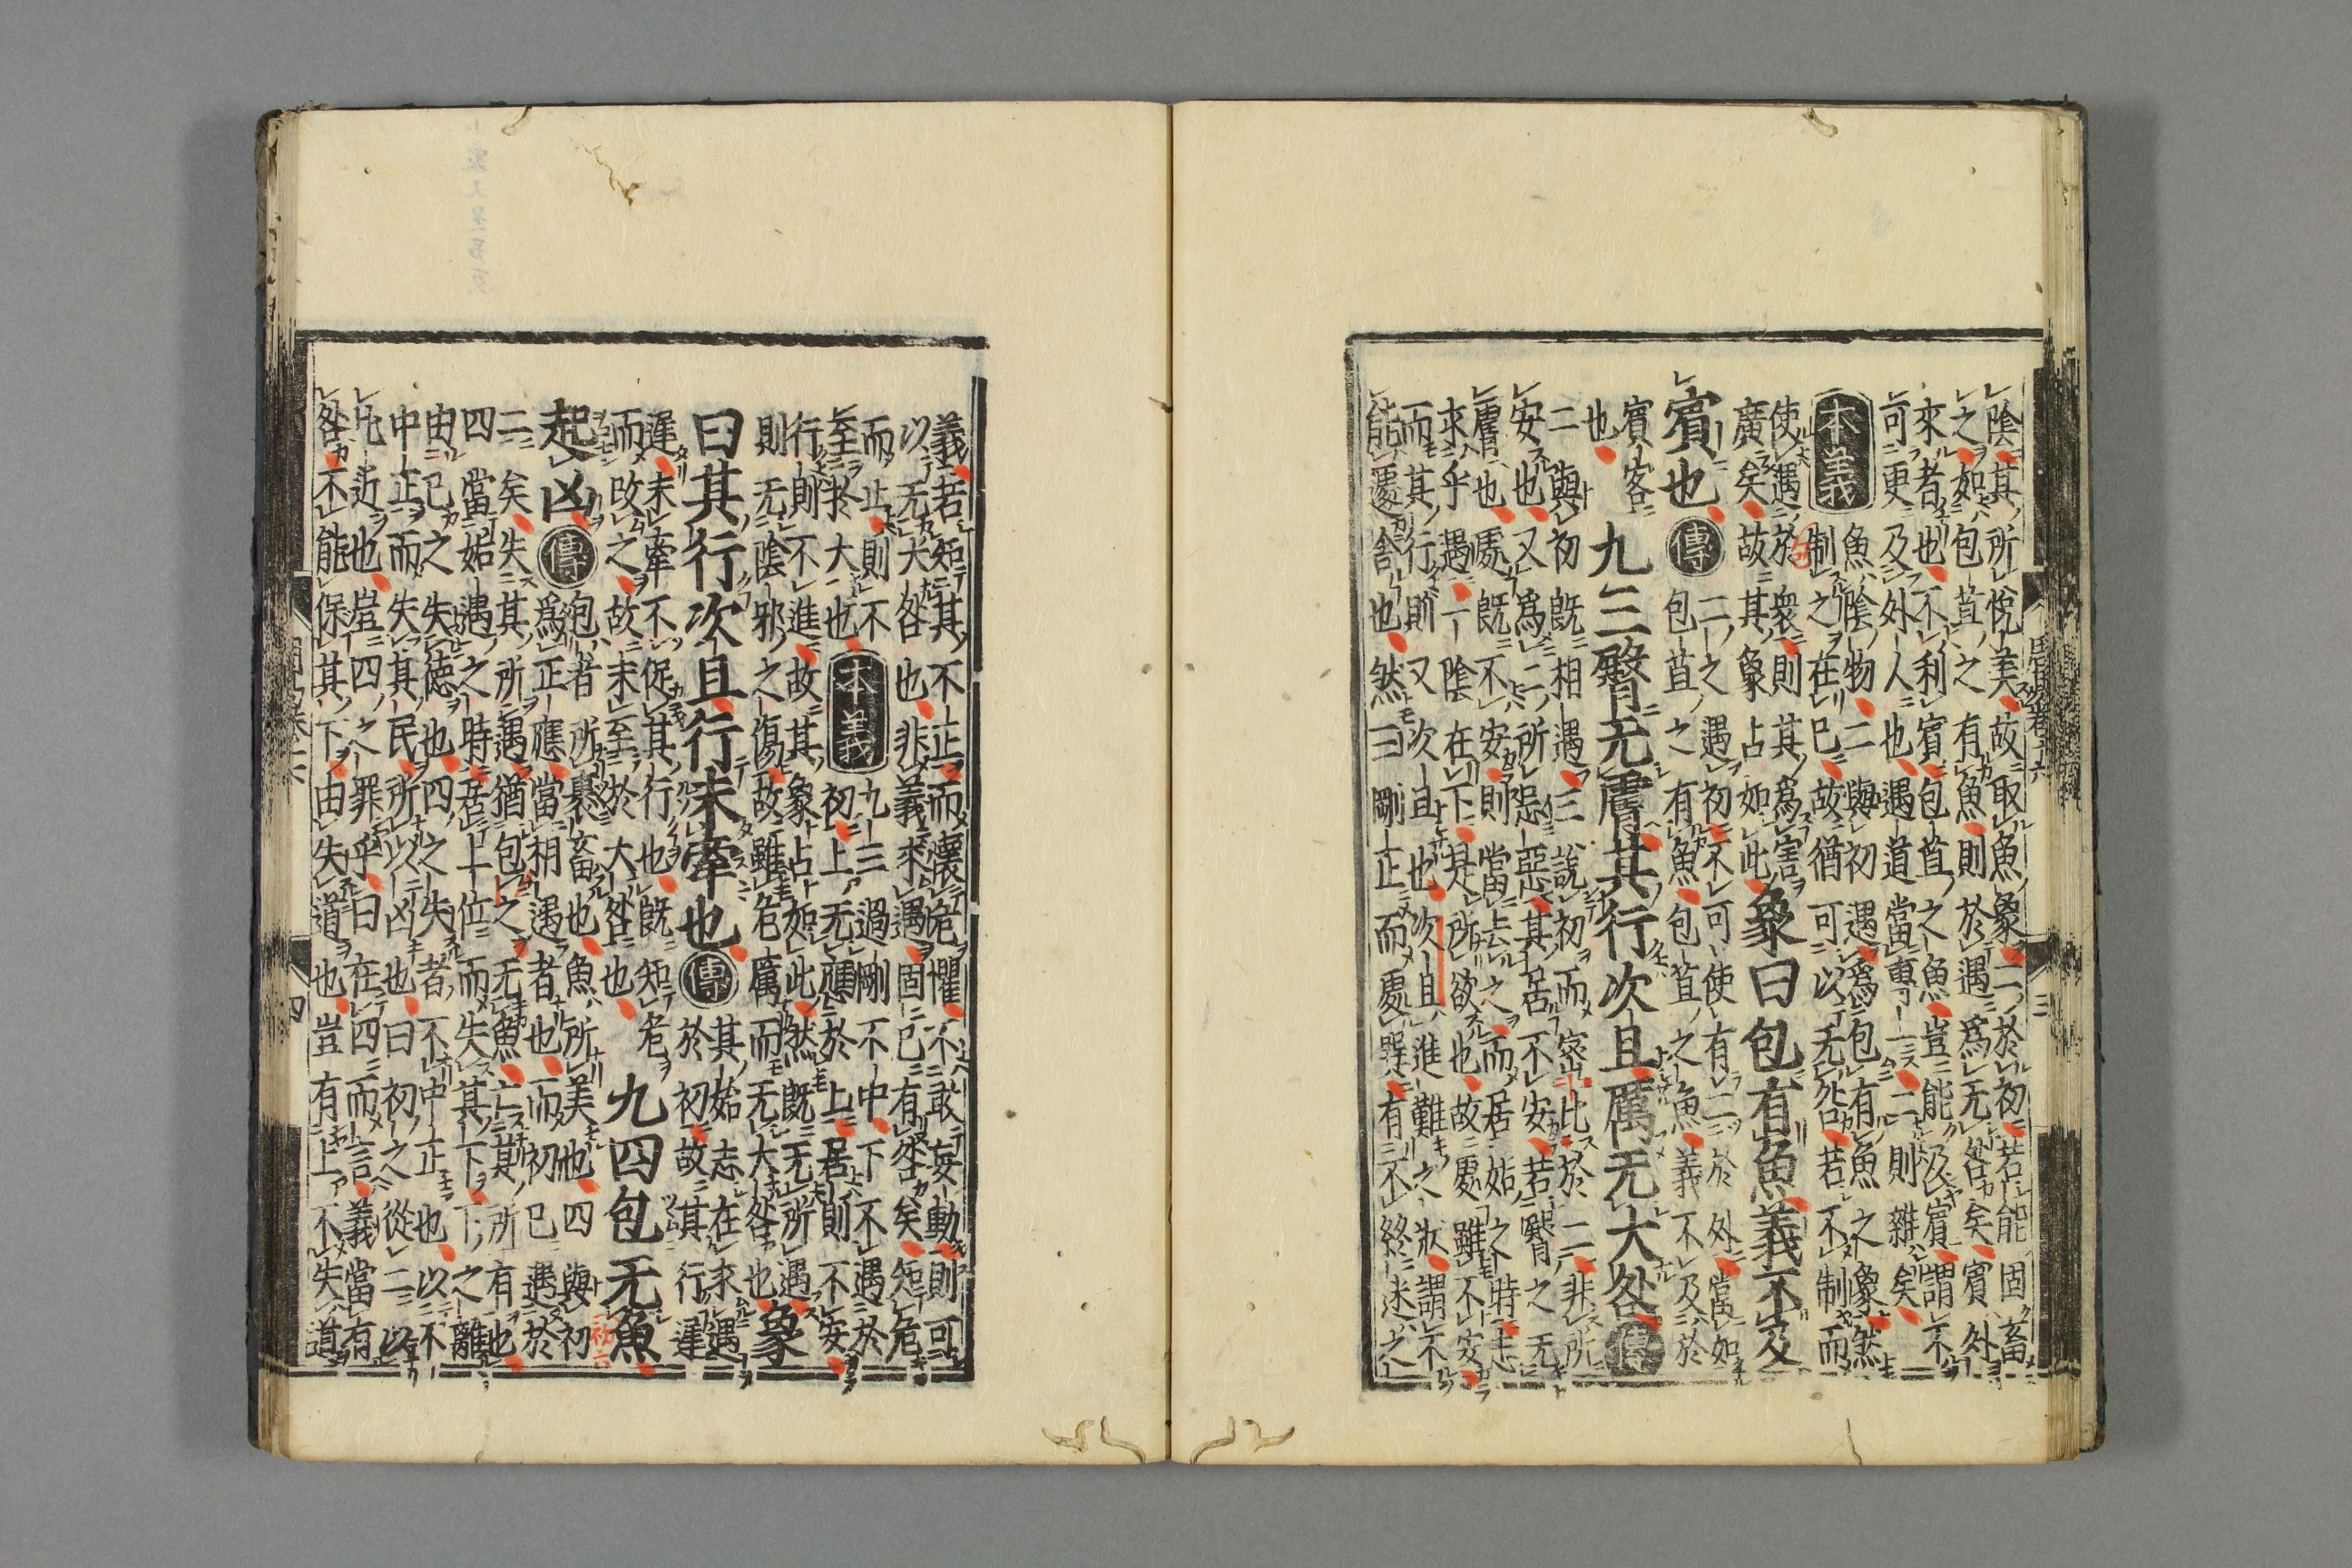 陰其所悅美故取魚象二於初若能固畜
之如包苴之有魚則於遇爲无咎矣賓外
來者也不利賓包苴之魚豈能及賓謂不
可更及外人也遇道當專一二則雜矣
本義 魚陰物二與初遇爲包有魚之象然
制之在巳故猶可以无咎若不制而
使遇於衆則其爲害
廣矣故其象占如此 象曰包有魚義不及
賓也 傳 二之遇初不可使有二於外當如
包苴之有魚包苴之魚義不及於
賓客
也 九三臀无膚其行次且厲无大咎 傳
二與初既相遇三說初而密比於二非所
安也又爲二所忌惡其居不安若臀之无
膚也處既不安則當去之而居姤之時志
求乎遇一陰在下是所欲也故處雖不安
而其行則又次且也次且進難之狀謂不
能遽舍也然三剛正而處巽有不終迷之
義若知其不正而懷危懼不敢妄動則可
以无大咎也非義求遇固已有咎矣知危
而止則不至於大也 本義 九三過剛不中下不遇於
初上无應於上居則不安
行則不進故其象占如此然既无所遇
則无陰邪之傷故雖危厲而无大咎也 象
曰其行次且行未牽也 傳 其始志在求遇
於初故其行遲
遲未牽不促其行也既知危
而改之故未至於大咎也 九四包无魚
初六
起凶 傳 包者所裹畜也魚所美也四與初
爲正應當相遇者也而初巳遇於
二矣失其所遇猶包之无魚亡其所有也
四當姤遇之時居上位而失其下下之離
由己之失德也四之失者不中正也以不
中正而失其民所以凶也曰初之從二以
比近也豈四之罪乎曰在四而言義當有
咎不能保其下由失道也豈有上不失道